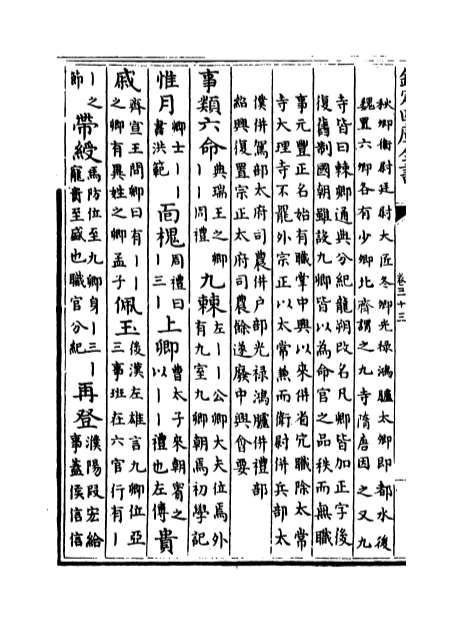 欽定四庫全書
卷三十三
秋卿衛尉廷尉大匠冬卿光祿鴻臚太卿即都水後
魏置六卿各有少卿北齊謂之九寺隋唐因之又九
寺皆曰棘卿通典分紀龍朔改名凡卿皆加正字後
復舊制國朝雖設九卿皆以為命官之品秩而無職
事元豐正名始有職掌中興以來併省冗職除太常
寺大理寺不罷外宗正以太常兼而衛尉併兵部太
僕併駕部太府司農併户部光祿鴻臚併禮部
紹興復置宗正太府司農餘遂廢中興會要
事類六命 典瑞王之卿
｜｜周禮
九棘 左｜｜公卿大夫位焉外
有九室九卿朝焉初學記
惟月 卿士｜｜
書洪範
面槐 周禮曰
｜三｜
上卿 曹太子來朝賓之
以｜｜禮也左傳
貴
戚 齊宣王問卿曰有｜｜
之卿有異姓之卿孟子
佩玉 後漢左雄言九卿位亞
三事班在六官行有｜
｜之
節
帶綬 馬防位至九卿身｜三｜
寵貴至盛也職官分紀
再登 濮陽段宏給
事蓋侯信信